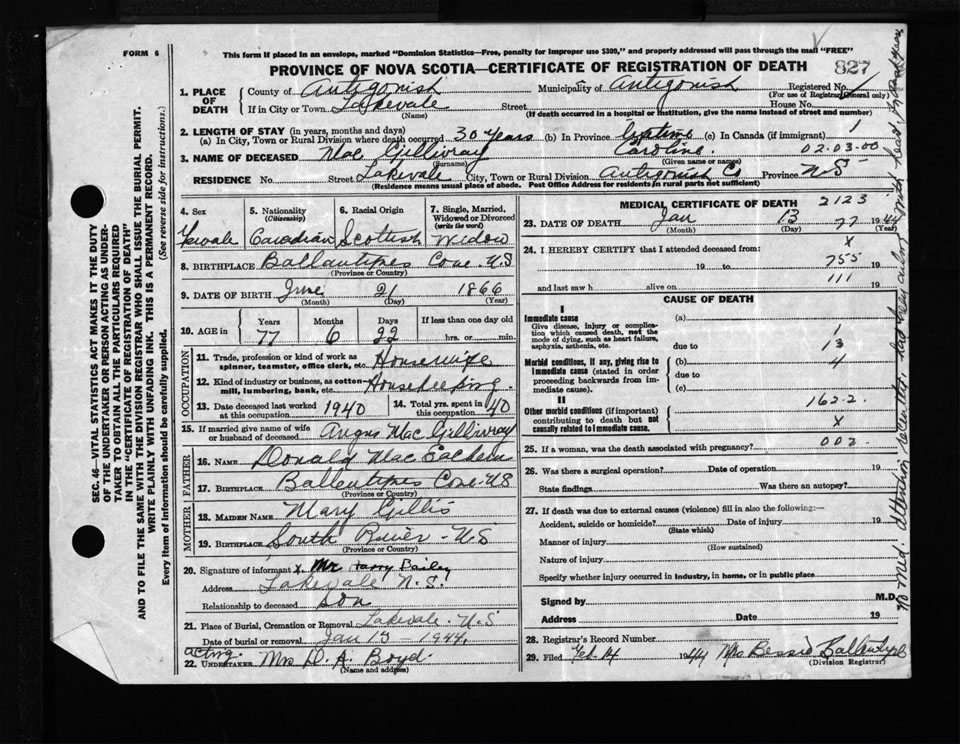 FORM 6
This form if placed in an envelope, marked "Dominion Statistics—Free, penalty for improper use $300," and properly addressed will pass through the mail "FREE"
PROVINCE OF NOVA SCOTIA—CERTIFICATE OF REGISTRATION OF DEATH 827
1. PLACE OF DEATH
County of Antigonish Municipality of Antigonish Registered No.
(For use of Registrar General only)
If in City or Town Lakevale Street House No.
(Name) (If death occurred in a hospital or institution, give the name instead of street and number)
2. LENGTH OF STAY (in years, months and days)
(a) In City, Town or Rural Division where death occurred 30 years (b) In Province Lifetime (c) In Canada (if immigrant) 1
3. NAME OF DECEASED Mac Gillivray Caroline. 02.03.00
(Surname) (Given name or names)
RESIDENCE No. Street Lakevale City, Town or Rural Division Antigonish Co Province N S
(Residence means usual place of abode. Post Office Address for residents in rural parts not sufficient)
4. Sex
Female
5. Nationality
(Citizenship)
Canadian
6. Racial Origin
Scottish
7. Single, Married, Widowed or Divorced
(write the word)
Widow
8. BIRTHPLACE Ballantynes Cove N.S
(Province or Country)
9. DATE OF BIRTH June 21 1866
(Month) (Day) (Year)
10. AGE in
Years Months Days If less than one day old
77 6 22 hrs. or min.
OCCUPATION
11. Trade, profession or kind of work as spinner, teamster, office clerk, etc. Housewife
12. Kind of industry or business, as cotton-mill, lumbering, bank, etc. Housekeeping.
13. Date deceased last worked at this occupation 1940
14. Total yrs. spent in this occupation 40
15. If married give name of wife or husband of deceased Angus Mac Gillivray
FATHER
16. NAME Donald Mac Eachern
17. BIRTHPLACE Ballentynes Cove N S
(Province or Country)
MOTHER
18. MAIDEN NAME Mary Gillis
19. BIRTHPLACE South River - N.S
(Province or Country)
20. Signature of informant x. Mr Harry Bailey
Address Lakevale N.S.
Relationship to deceased Son
21. Place of Burial, Cremation or Removal Lakevale. N.S
Date of burial or removal Jan 13 - 1944.
acting.
22. UNDERTAKER Mrs D. A. Boyd.
(Name and address)
MEDICAL CERTIFICATE OF DEATH 2123
23. DATE OF DEATH Jan 13 1944
77
(Month) (Day) (Year)
24. I HEREBY CERTIFY that I attended deceased from: X
19 to 755 19
and last saw h alive on 111 19
CAUSE OF DEATH
I
Immediate cause
Give disease, injury or complication which caused death, not the mode of dying, such as heart failure, asphyxia, asthenia, etc.
(a)
due to
1
13
Morbid conditions, if any, giving rise to immediate cause (stated in order proceeding backwards from immediate cause).
(b) 4
due to
(c)
II
162-2.
Other morbid conditions (if important) contributing to death but not causally related to immediate cause.
X
25. If a woman, was the death associated with pregnancy? 003.
26. Was there a surgical operation? Date of operation 19
State findings Was there an autopsy?
27. If death was due to external causes (violence) fill in also the following:—
Accident, suicide or homicide? Date of injury 19
(State which)
Manner of injury
(How sustained)
Nature of injury
Specify whether injury occurred in industry, in home, or in public place
Signed by M.D.
Address Date 19
28. Registrar's Record Number
29. Filed Feb 14 1944 Mrs Bessie Ballantyne
(Division Registrar)
SEC. 46—VITAL STATISTICS ACT MAKES IT THE DUTY OF THE UNDERTAKER OR PERSON ACTING AS UNDERTAKER TO OBTAIN ALL THE PARTICULARS REQUIRED IN THE "CERTIFICATE OF REGISTRATION OF DEATH" AND TO FILE THE SAME WITH THE DIVISION REGISTRAR WHO SHALL ISSUE THE BURIAL PERMIT.
WRITE PLAINLY WITH UNFADING INK. THIS IS A PERMANENT RECORD.
Every item of information should be carefully supplied. (See reverse side for instructions.)
No Med. attention recently. had been ailing with heart for